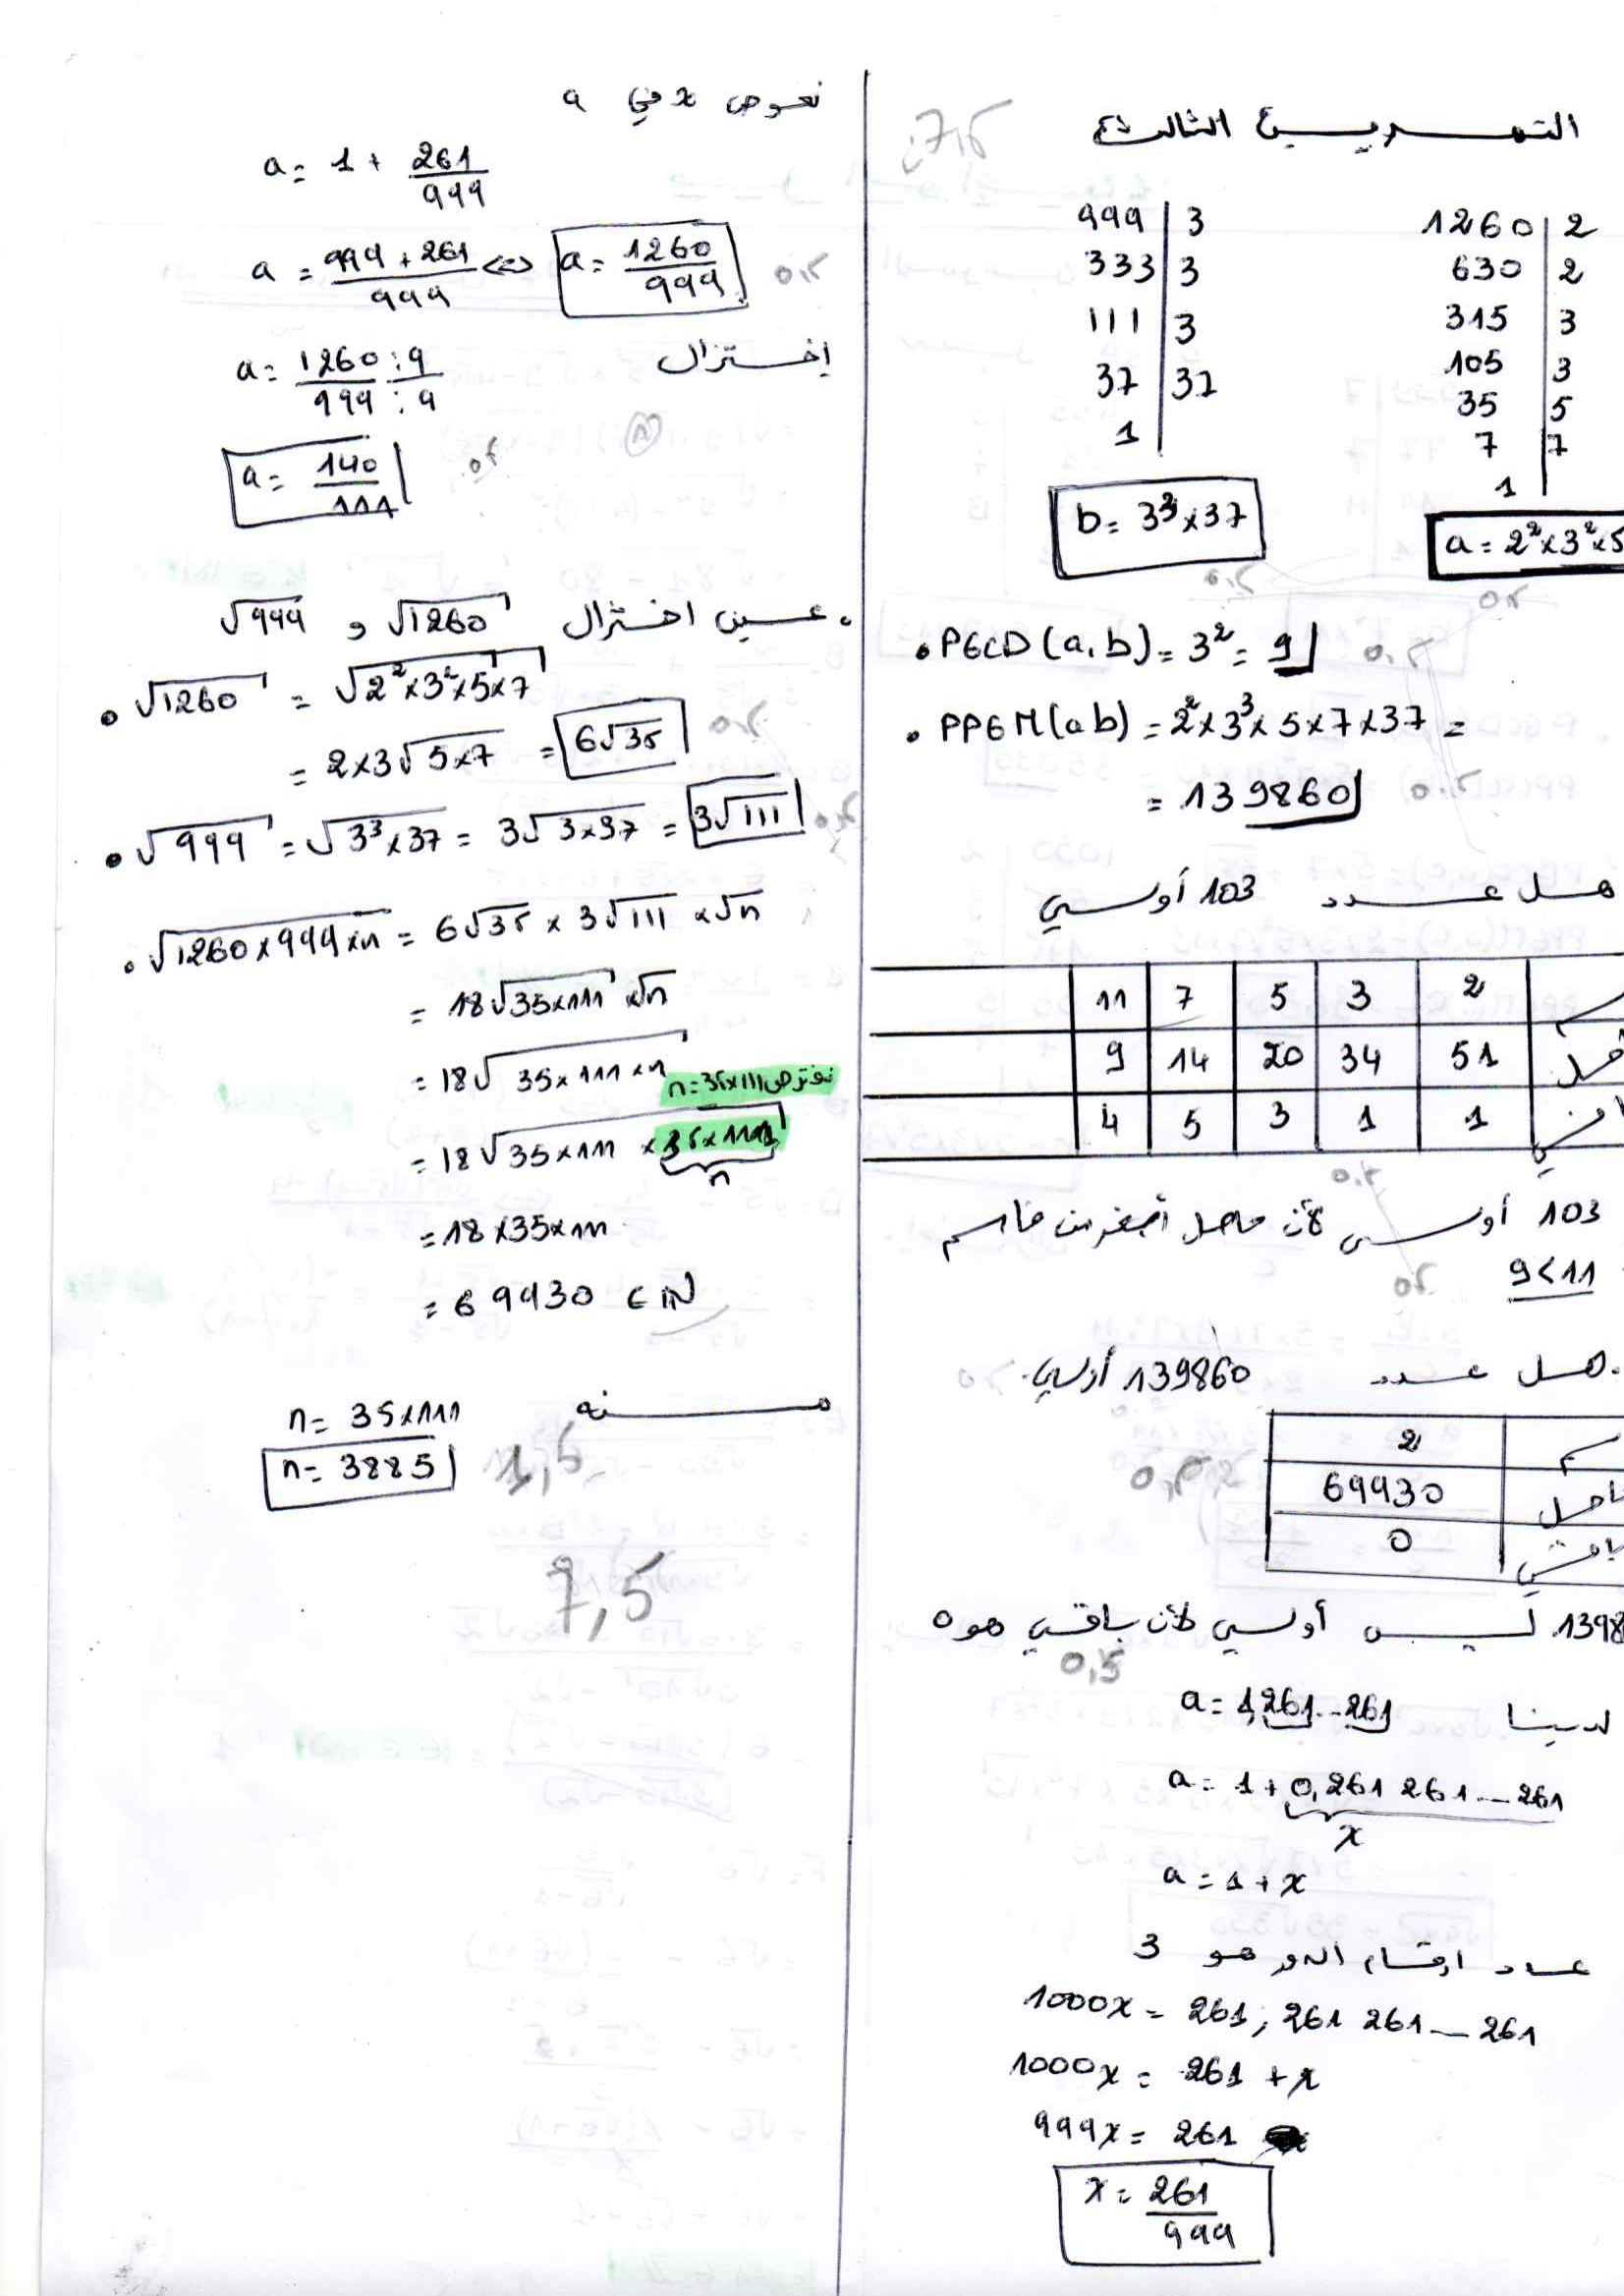 التمرين الثالث
7,5
1260 | 2
630 | 2
315 | 3
105 | 3
35 | 5
7 | 7
1
a = 2²×3²×5
999 | 3
333 | 3
111 | 3
37 | 37
1
b = 3³×37
0.5
0.5
• PGCD(a,b) = 3² = 9
0.5
• PPGM(ab) = 2²×3³×5×7×37 =
= 139860
0.5
هل عدد 103 أولي
2 | 3 | 5 | 7 | 11
51 | 34 | 20 | 14 | 9
1 | 1 | 3 | 5 | 4
103 أولي لأن حاصل أصغر من قاسم
9<11
0.5
• هل عدد 139860 أولي.
2
69930
0
0,5
1398 ليس أولي لأن باقي هو 0
0,5
لدينا a = 1,261...261
a = 1+0,261 261...261
x
a = 1+x
عدد ارقام الدور هو 3
1000x = 261,261 261...261
1000x = 261+x
999x = 261
x = 261/999
نعوض x في a
a = 1 + 261/999
a = (999+261)/999 ⇔ a = 1260/999
0.5
إختزال
a = 1260:9/999:9
a = 140/111
0.5
• عين اختزال √1260 و √999
• √1260 = √2²×3²×5×7
= 2×3√5×7 = 6√35
0.5
• √999 = √3³×37 = 3√3×37 = 3√111
0.5
• √1260×999×n = 6√35 × 3√111 ×√n
= 18√35×111 ×√n
= 18√35×111×n
نفترض n=35×111
= 18√35×111 ×35×111
n
= 18×35×111
= 69930 ∈ ℕ
منه
n = 35×111
n = 3885
1,5
7,5